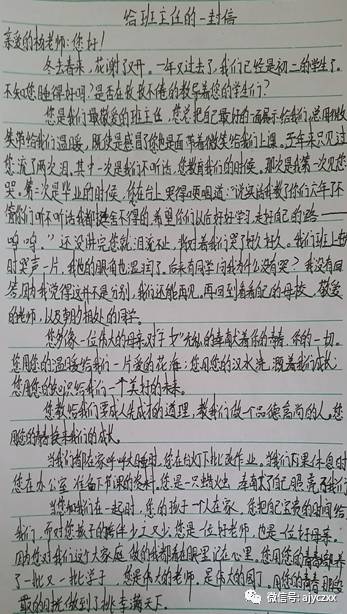 给班主任的一封信
亲爱的杨老师:您好!
冬去春来,花谢了又开。一年又过去了,我们已经是初二的学生了。
不知您睡得好吗?是否在孜孜不倦的教导着您的学生们?
您是我们最敬爱的班主任,您总把自己最好的一面展示给我们,总用微
笑带给我们温暖,既使是感冒了您也是面带着微笑给我们上课。六年来只见过
您流了两次泪。其中一次是我们不听话,您教育我们的时候。那次是我第一次见您
哭。第二次是毕业的时候,您在台上哭得哽咽道:"说实话我教了你们六年了不
管你们听不听话我都挺舍不得的,希望你们以后好好学习,走好自己的路——
呜,呜。"还没讲完您就泪流不止,背对着我们哭了好久好久。我们班上顿
时哭声一片,我他的眼角也湿润了。后来有同学问我为什么没有哭?我没有回
答,因为我觉得这并不是分别,我们还能再见,再回到看看自己的母校,敬爱
的老师,以及朝夕相处的同学。
您多像一位伟大的母亲对子女无私的奉献着您的青春,您的一切。
您用您的温暖给我们一片爱的花海;您用您的汗水浇灌着我们成长
您用您的知识给我们一个美好的未来。
您教给我们要成人先成才的道理,教我们做个品德高尚的人。您
用您的青春换来我们的成长。
当我们都在家呼呼大睡时,您在台灯下批改作业。当我们内课休息时
您在办公室准备下节课的教材,您是一只蜡烛,燃烧了自己照亮了我们
当您和我们在一起时,您的孩子一个人在家,您把自己宝贵的时间给
我们,而对您孩子的陪伴少之又少。您是一位好老师,也是一位好母亲,
因为您对我们这个大家庭做的我都看在眼里记在心里。您用您的青春
了一批又一批学子,您是伟大的老师,是伟大的园丁,用您的青春
取的目地做到了桃李满天下。
微信号: ajyczxx